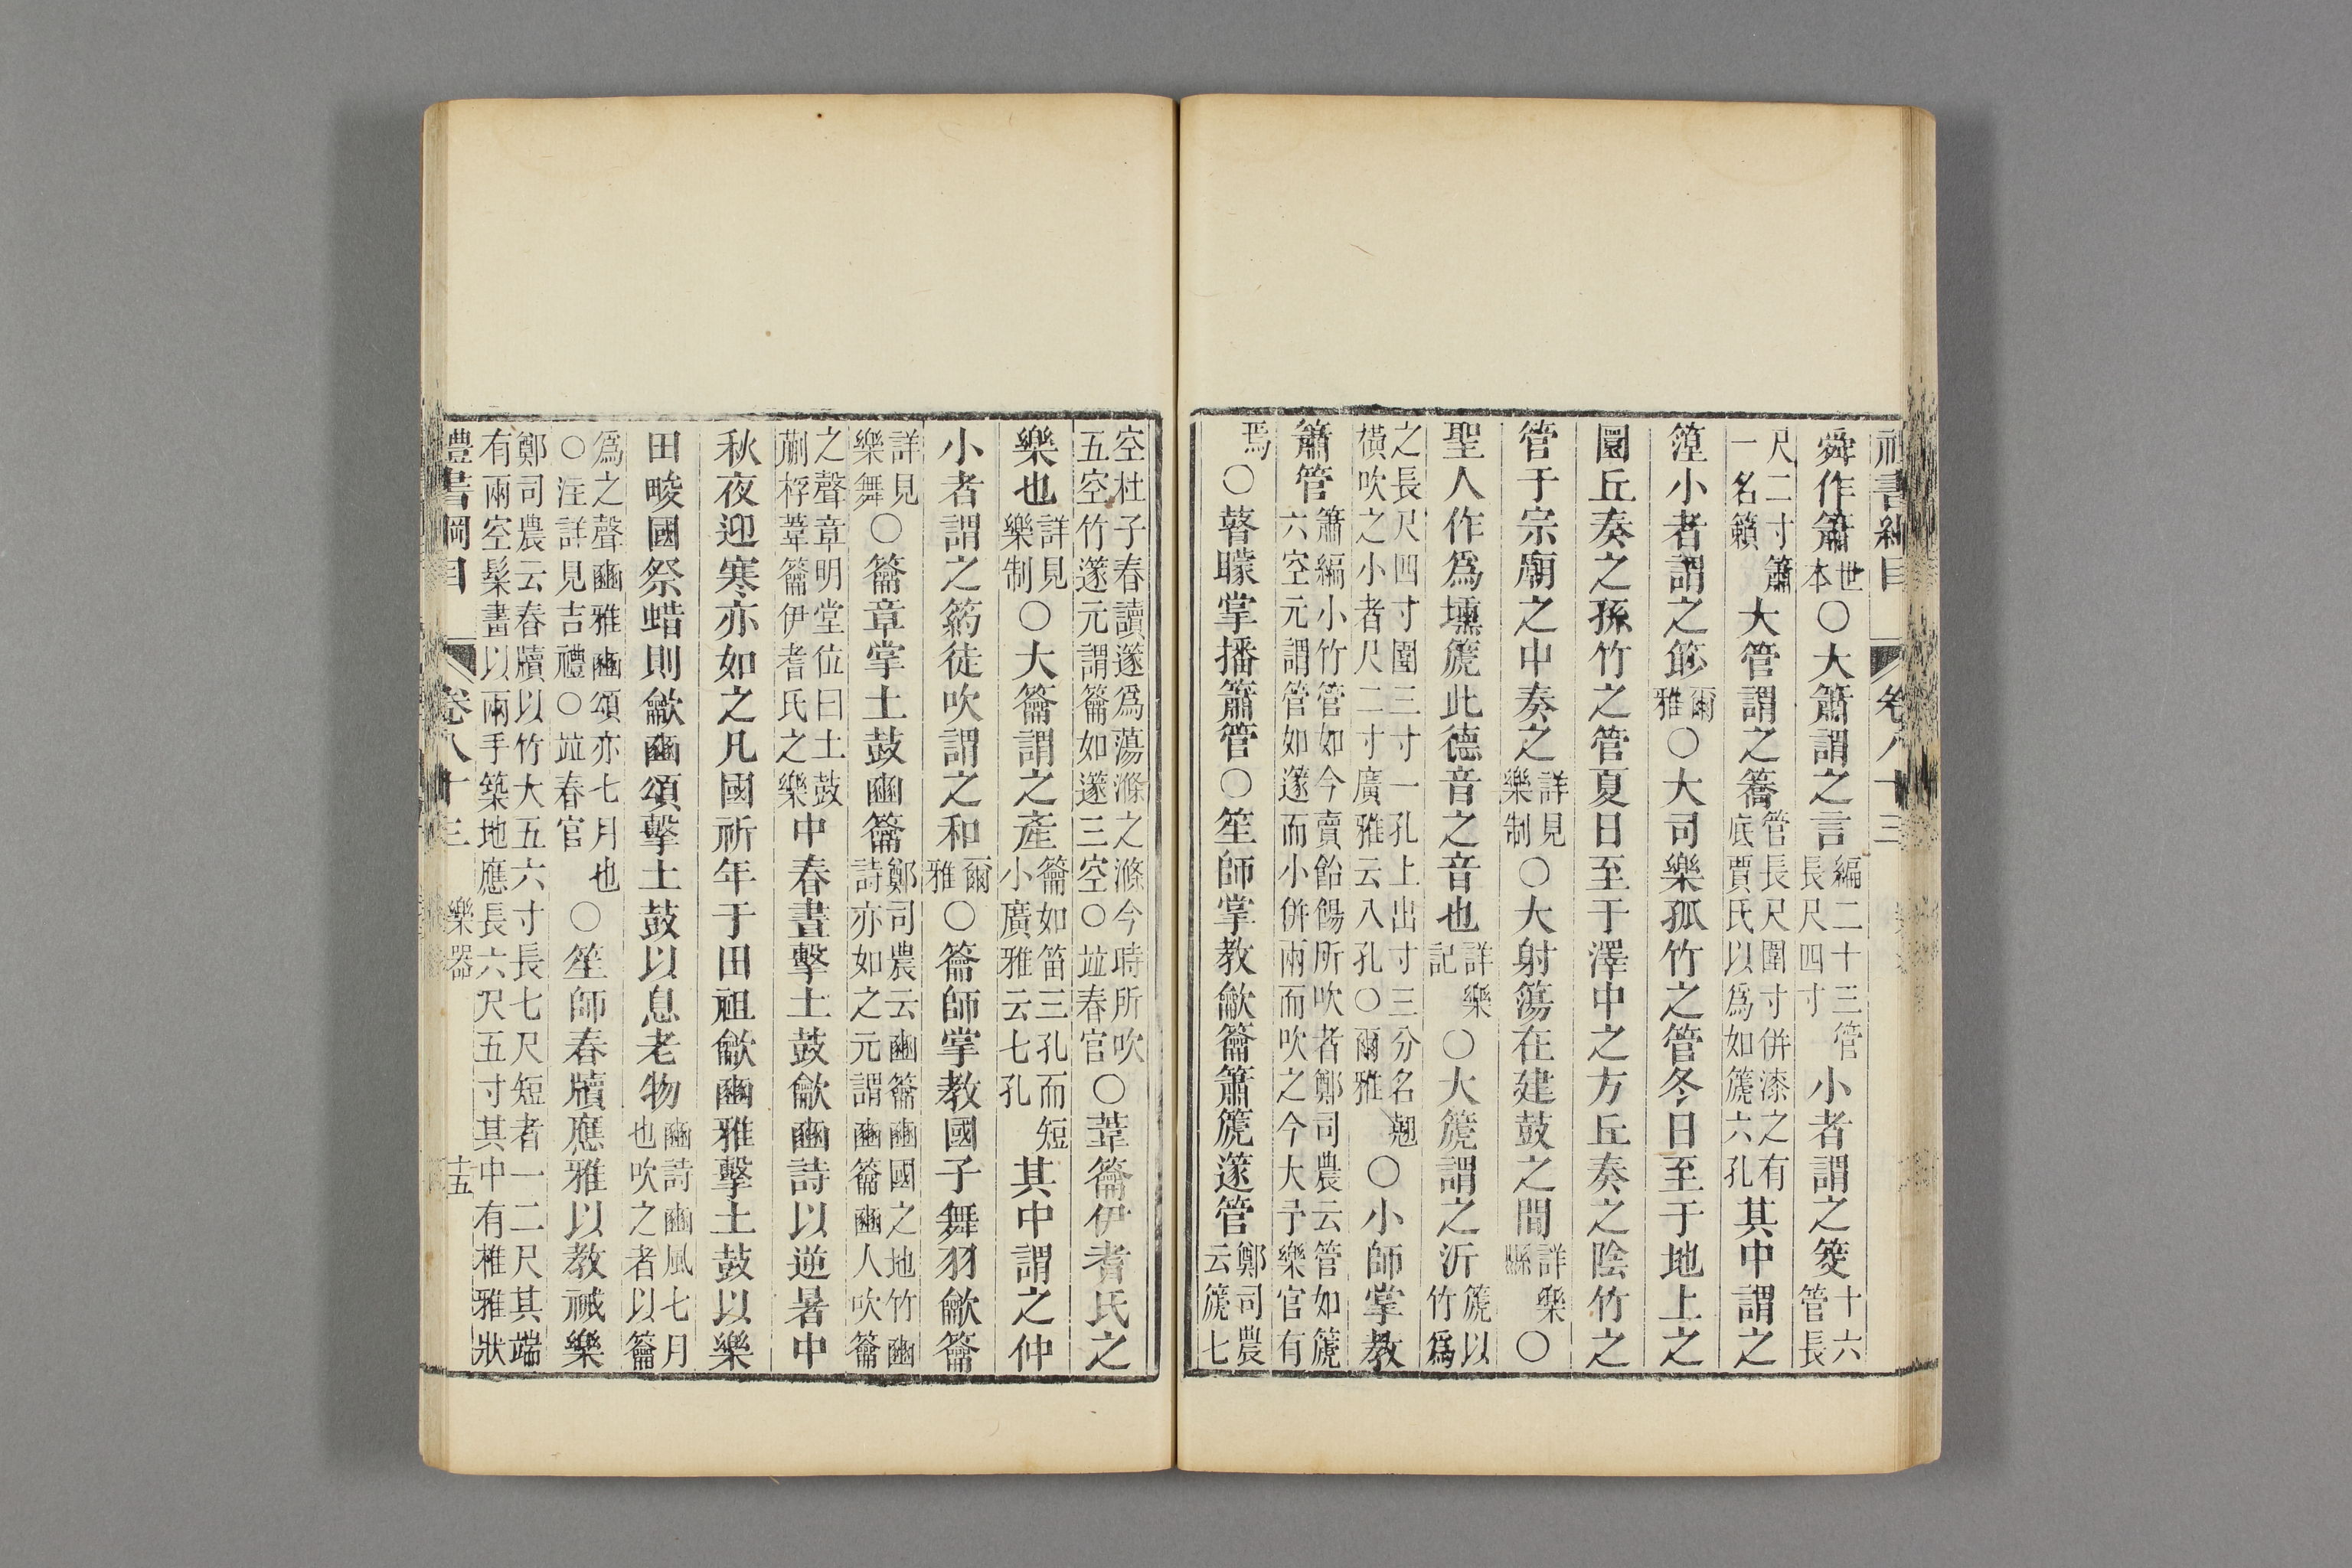 禮書綱目 卷八十三
舜作簫世本○大簫謂之言編二十三管長尺四寸小者謂之筊十六管長
尺二寸簫一名籟大管謂之簥管長尺圍寸併漆之有底賈氏以爲如篪六孔其中謂之
篞小者謂之篎爾雅○大司樂孤竹之管冬日至于地上之
圜丘奏之孫竹之管夏日至于澤中之方丘奏之陰竹之
管于宗廟之中奏之詳見樂制○大射簜在建鼓之間詳樂縣○
聖人作爲壎篪此德音之音也詳樂記○大篪謂之沂篪以竹爲
之長尺四寸圍三寸一孔上出寸三分名翹橫吹之小者尺二寸廣雅云八孔○爾雅○小師掌教
簫管簫編小竹管如今賣飴餳所吹者鄭司農云管如篪六空元謂管如篴而小併兩而吹之今大予樂官有
焉○瞽矇掌播簫管○笙師掌教龡籥簫篪篴管鄭司農云篪七
空杜子春讀篴爲蕩滌之滌今時所吹五空竹篴元謂籥如篴三空○竝春官○葦籥伊耆氏之
樂也詳見樂制○大籥謂之產籥如笛三孔而短小廣雅云七孔其中謂之仲
小者謂之箹徒吹謂之和爾雅○籥師掌教國子舞羽龡籥
詳見樂舞○籥章掌土鼓豳籥鄭司農云豳籥豳國之地竹豳詩亦如之元謂豳籥豳人吹籥
之聲章明堂位曰土鼓蒯桴葦籥伊耆氏之樂中春晝擊土鼓龡豳詩以逆暑中
秋夜迎寒亦如之凡國祈年于田祖龡豳雅擊土鼓以樂
田畯國祭蜡則龡豳頌擊土鼓以息老物豳詩豳風七月也吹之者以籥
爲之聲豳雅豳頌亦七月也○注詳見吉禮○竝春官○笙師春牘應雅以教祴樂
鄭司農云春牘以竹大五六寸長七尺短者一二尺其端有兩空髹畫以兩手築地應長六尺五寸其中有椎雅狀
禮書綱目 卷八十三 樂器 十五